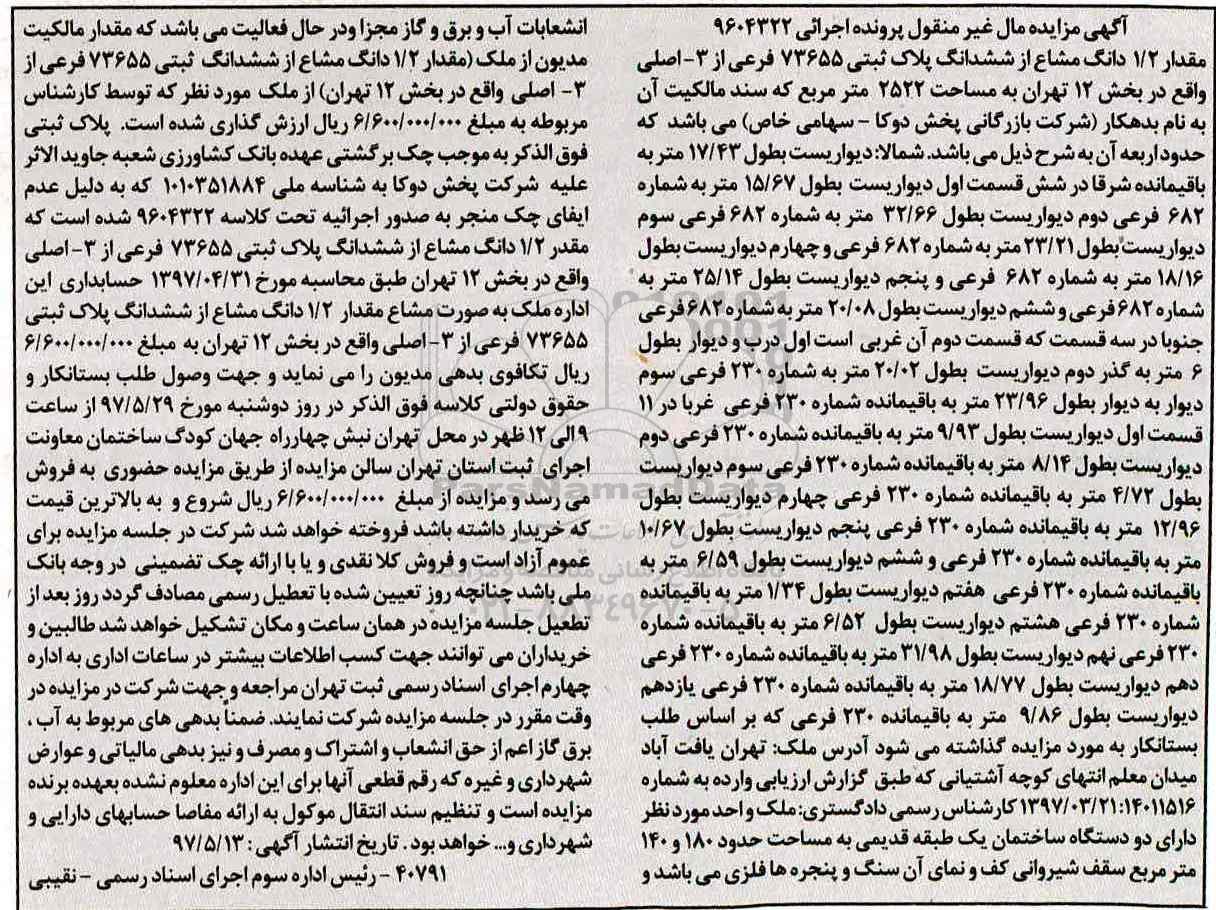 آگهی مزایده مال غیر منقول پرونده اجرائی ۹۶۰۴۳۲۲
مقدار ۱/۲ دانگ مشاع از ششدانگ پلاک ثبتی ۷۳۶۵۵ فرعی از ۳-اصلی
واقع در بخش ۱۲ تهران به مساحت ۲۵۲۲ متر مربع که سند مالکیت آن
به نام بدهکار (شرکت بازرگانی پخش دوکا - سهامی خاص) می باشد که
حدود اربعه آن به شرح ذیل می باشد. شمالا: دیواریست بطول ۱۷/۴۳ متر به
باقیمانده شرقا در شش قسمت اول دیواریست بطول ۱۵/۶۷ متر به شماره
۶۸۲ فرعی دوم دیواریست بطول ۳۲/۶۶ متر به شماره ۶۸۲ فرعی سوم
دیواریست بطول ۲۳/۲۱ متر به شماره ۶۸۲ فرعی و چهارم دیواریست بطول
۱۸/۱۶ متر به شماره ۶۸۲ فرعی و پنجم دیواریست بطول ۲۵/۱۴ متر به
شماره ۶۸۲ فرعی و ششم دیواریست بطول ۲۰/۰۸ متر به شماره ۶۸۲ فرعی
جنوبا در سه قسمت که قسمت دوم آن غربی است اول درب و دیوار بطول
۶ متر به گذر دوم دیواریست بطول ۲۰/۰۲ متر به شماره ۲۳۰ فرعی سوم
دیوار به دیوار بطول ۲۳/۹۶ متر به باقیمانده شماره ۲۳۰ فرعی غربا در ۱۱
قسمت اول دیواریست بطول ۹/۹۳ متر به باقیمانده شماره ۲۳۰ فرعی دوم
دیواریست بطول ۸/۱۴ متر به باقیمانده شماره ۲۳۰ فرعی سوم دیواریست
بطول ۴/۷۲ متر به باقیمانده شماره ۲۳۰ فرعی چهارم دیواریست بطول
۱۲/۹۶ متر به باقیمانده شماره ۲۳۰ فرعی پنجم دیواریست بطول ۱۰/۶۷
متر به باقیمانده شماره ۲۳۰ فرعی و ششم دیواریست بطول ۶/۵۹ متر به
باقیمانده شماره ۲۳۰ فرعی هفتم دیواریست بطول ۱/۳۴ متر به باقیمانده
شماره ۲۳۰ فرعی هشتم دیواریست بطول ۶/۵۲ متر به باقیمانده شماره
۲۳۰ فرعی نهم دیواریست بطول ۳۱/۹۸ متر به باقیمانده شماره ۲۳۰ فرعی
دهم دیواریست بطول ۱۸/۷۷ متر به باقیمانده شماره ۲۳۰ فرعی یازدهم
دیواریست بطول ۹/۸۶ متر به باقیمانده ۲۳۰ فرعی که بر اساس طلب
بستانکار به مورد مزایده گذاشته می شود آدرس ملک: تهران یافت آباد
میدان معلم انتهای کوچه آشتیانی که طبق گزارش ارزیابی وارده به شماره
۱۴۰۱۱۵۱۶:۱۳۹۷/۰۳/۲۱ کارشناس رسمی دادگستری: ملک واحد مورد نظر
دارای دو دستگاه ساختمان یک طبقه قدیمی به مساحت حدود ۱۸۰ و ۱۴۰
متر مربع سقف شیروانی کف و نمای آن سنگ و پنجره ها فلزی می باشد و
انشعابات آب و برق و گاز مجزا ودر حال فعالیت می باشد که مقدار مالکیت
مدیون از ملک (مقدار ۱/۲ دانگ مشاع از ششدانگ ثبتی ۷۳۶۵۵ فرعی از
۳- اصلی واقع در بخش ۱۲ تهران) از ملک مورد نظر که توسط کارشناس
مربوطه به مبلغ ۶/۶۰۰/۰۰۰/۰۰۰ ریال ارزش گذاری شده است. پلاک ثبتی
فوق الذکر به موجب چک برگشتی عهده بانک کشاورزی شعبه جاوید الاثر
علیه شرکت پخش دوکا به شناسه ملی ۱۰۱۰۳۵۱۸۸۴ که به دلیل عدم
ایفای چک منجر به صدور اجرائیه تحت کلاسه ۹۶۰۴۳۲۲ شده است که
مقدر ۱/۲ دانگ مشاع از ششدانگ پلاک ثبتی ۷۳۶۵۵ فرعی از ۳- اصلی
واقع در بخش ۱۲ تهران طبق محاسبه مورخ ۱۳۹۷/۰۴/۳۱ حسابداری این
اداره ملک به صورت مشاع مقدار ۱/۲ دانگ مشاع از ششدانگ پلاک ثبتی
۷۳۶۵۵ فرعی از ۳- اصلی واقع در بخش ۱۲ تهران به مبلغ ۶/۶۰۰/۰۰۰/۰۰۰
ریال تکافوی بدهی مدیون را می نماید و جهت وصول طلب بستانکار و
حقوق دولتی کلاسه فوق الذکر در روز دوشنبه مورخ ۹۷/۵/۲۹ از ساعت
۹ الی ۱۲ ظهر در محل تهران نبش چهارراه جهان کودک ساختمان معاونت
اجرای ثبت استان تهران سالن مزایده از طریق مزایده حضوری به فروش
می رسد و مزایده از مبلغ ۶/۶۰۰/۰۰۰/۰۰۰ ریال شروع و به بالاترین قیمت
که خریدار داشته باشد فروخته خواهد شد شرکت در جلسه مزایده برای
عموم آزاد است و فروش کلا نقدی و یا با ارائه چک تضمینی در وجه بانک
ملی باشد چنانچه روز تعیین شده با تعطیل رسمی مصادف گردد روز بعد از
تعطیل جلسه مزایده در همان ساعت و مکان تشکیل خواهد شد طالبین و
خریداران می توانند جهت کسب اطلاعات بیشتر در ساعات اداری به اداره
چهارم اجرای اسناد رسمی ثبت تهران مراجعه و جهت شرکت در مزایده در
وقت مقرر در جلسه مزایده شرکت نمایند. ضمناً بدهی های مربوط به آب ،
برق گاز اعم از حق انشعاب و اشتراک و مصرف و نیز بدهی مالیاتی و عوارض
شهرداری و غیره که رقم قطعی آنها برای این اداره معلوم نشده بعهده برنده
مزایده است و تنظیم سند انتقال موکول به ارائه مفاصا حسابهای دارایی و
شهرداری و... خواهد بود. تاریخ انتشار آگهی: ۹۷/۵/۱۳
۴۰۷۹۱ - رئیس اداره سوم اجرای اسناد رسمی - نقیبی
ParsNamadData
۰۲۱-۸۸۳۴۹۶۷۰-۵